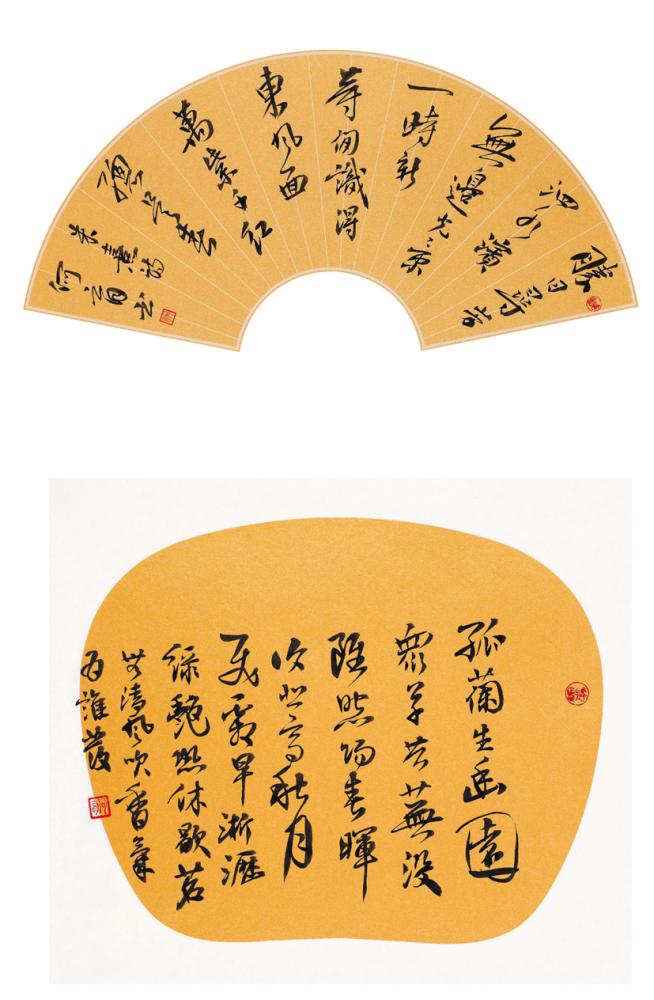 勝日尋芳
泗水濱
無邊光景
一時新
等閒識得
東風面
萬紫千紅
總是春
朱熹詩
何 書
孤蘭生幽園
眾草共蕪没
雖照陽春暉
復悲高秋月
飛霜早淅瀝
綠艷恐休歇若
無清風吹香氣
為誰發